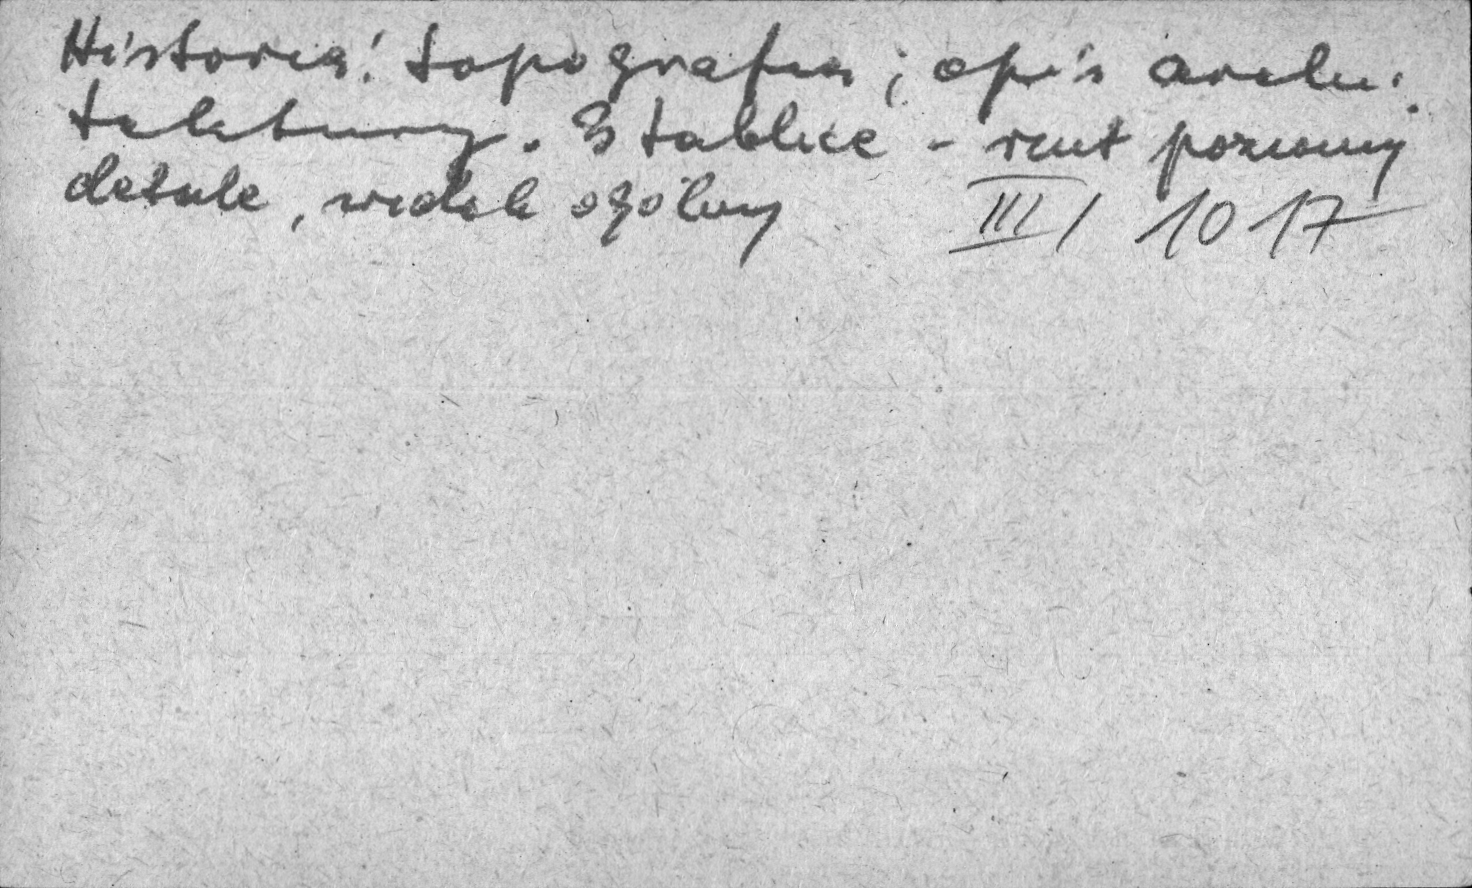 Historia i topografia; opis archi-
tektury. 3 tablice - rzut poziomy
detale, widok ogólny III/1017